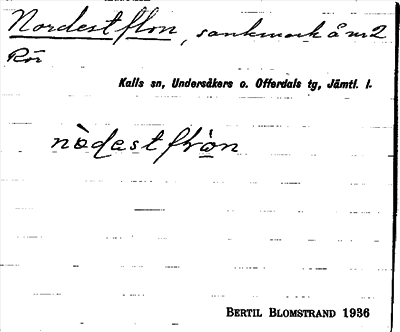 Nordestflon, sankmark å nr 2
Rör
Kalls sn, Undersåkers o. Offerdals tg, Jämtl. l.
nòdestflròn
BERTIL BLOMSTRAND 1936